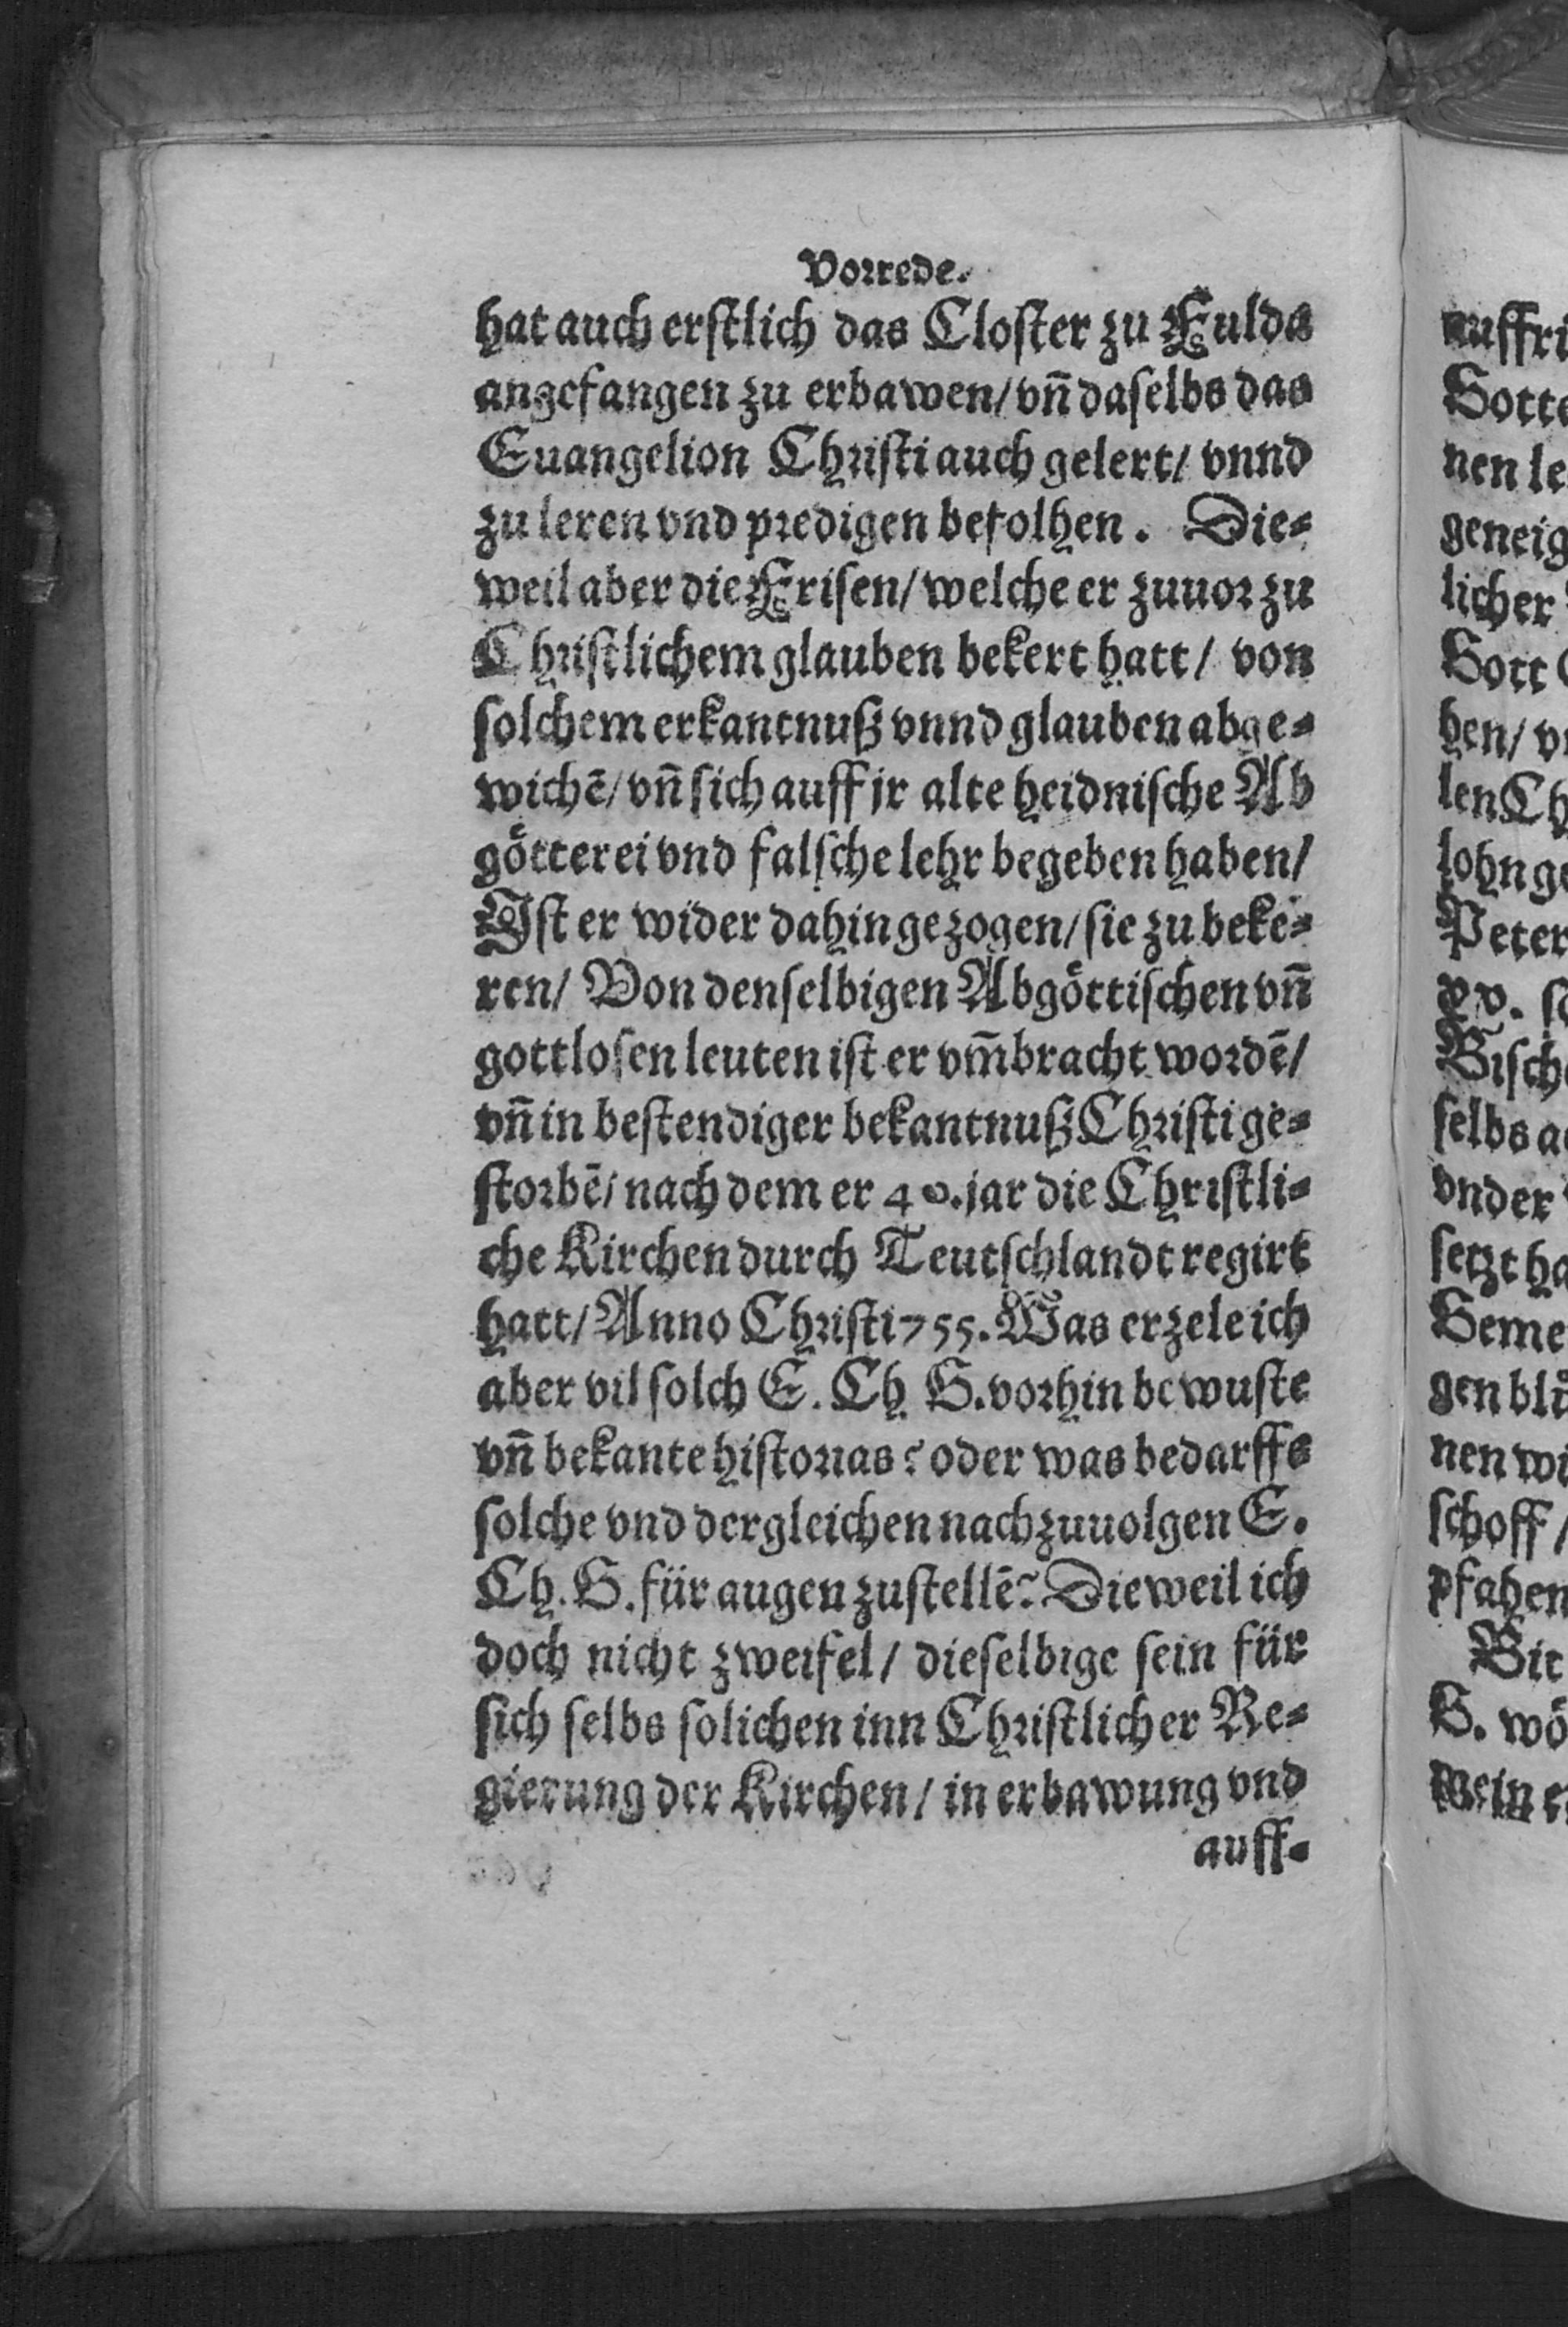 Vorrede.
hat auch erstlich das Closter zu Fulda
angefangen zu erbawen/ vn̄ daselbs das
Euangelion Christi auch gelert/ vnnd
zu leren vnd predigen befolhen. Die-
weil aber die Frisen/ welche er zuuor zu
Christlichem glauben bekert hatt/ von
solchem erkantnuß vnnd glauben abge-
wichē/ vn̄ sich auff jr alte heidnische Ab
götterei vnd falsche lehr begeben haben/
Ist er wider dahin gezogen/ sie zu beke-
ren/ Von denselbigen Abgöttischen vn̄
gottlosen leuten ist er vm̄bracht wordē/
vn̄ in bestendiger bekantnuß Christi ge-
storbē/ nach dem er 40. jar die Christli-
che Kirchen durch Teutschlandt regirt
hatt/ Anno Christi 755. Was erzele ich
aber vil solch E. Ch G. vorhin bewuste
vn̄ bekante historias? oder was bedarffs
solche vnd dergleichen nachzuuolgen E.
Ch. G. für augen zustellē? Dieweil ich
doch nicht zweifel/ dieselbige sein für
sich selbs solichen inn Christlicher Re-
gierung der Kirchen/ in erbawung vnd
auff-
auffri
Gotte
nen le
geneig
licher
Gott
hen/ v
len Ch
lohn ge
Peter
xv. so
Bisch
selbs a
vnder
setzt ha
Geme
gen bl
nen wi
schoff/
pfahen
Bit
G. wö
wein e